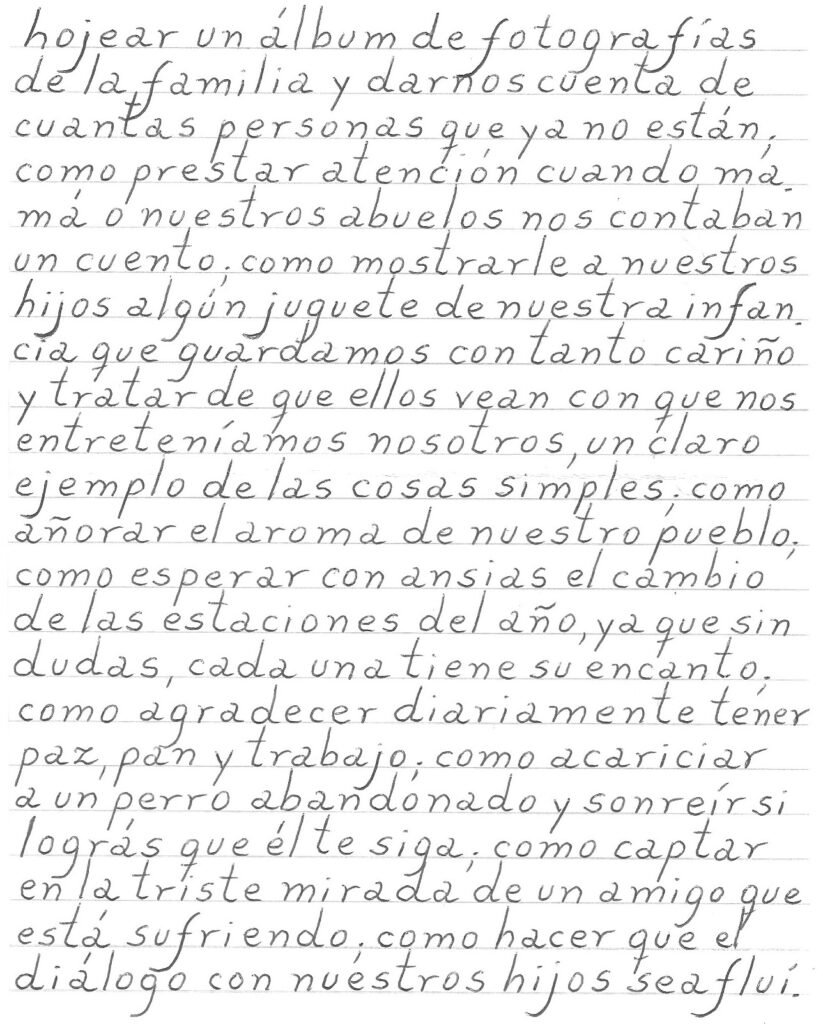 hojear un álbum de fotografías
de la familia y darnos cuenta de
cuantas personas que ya no están;
como prestar atención cuando má-
má o nuestros abuelos nos contaban
un cuento; como mostrarle a nuestros
hijos algún juguete de nuestra infan-
cia que guardamos con tanto cariño
y tratar de que ellos vean con que nos
entreteníamos nosotros, un claro
ejemplo de las cosas simples; como
añorar el aroma de nuestro pueblo;
como esperar con ansias el cambio
de las estaciones del año, ya que sin
dudas, cada una tiene su encanto;
como agradecer diariamente tener
paz, pan y trabajo; como acariciar
a un perro abandonado y sonreír si
lográs que él te siga; como captar
en la triste mirada de un amigo que
está sufriendo; como hacer que el
diálogo con nuestros hijos sea fluí-